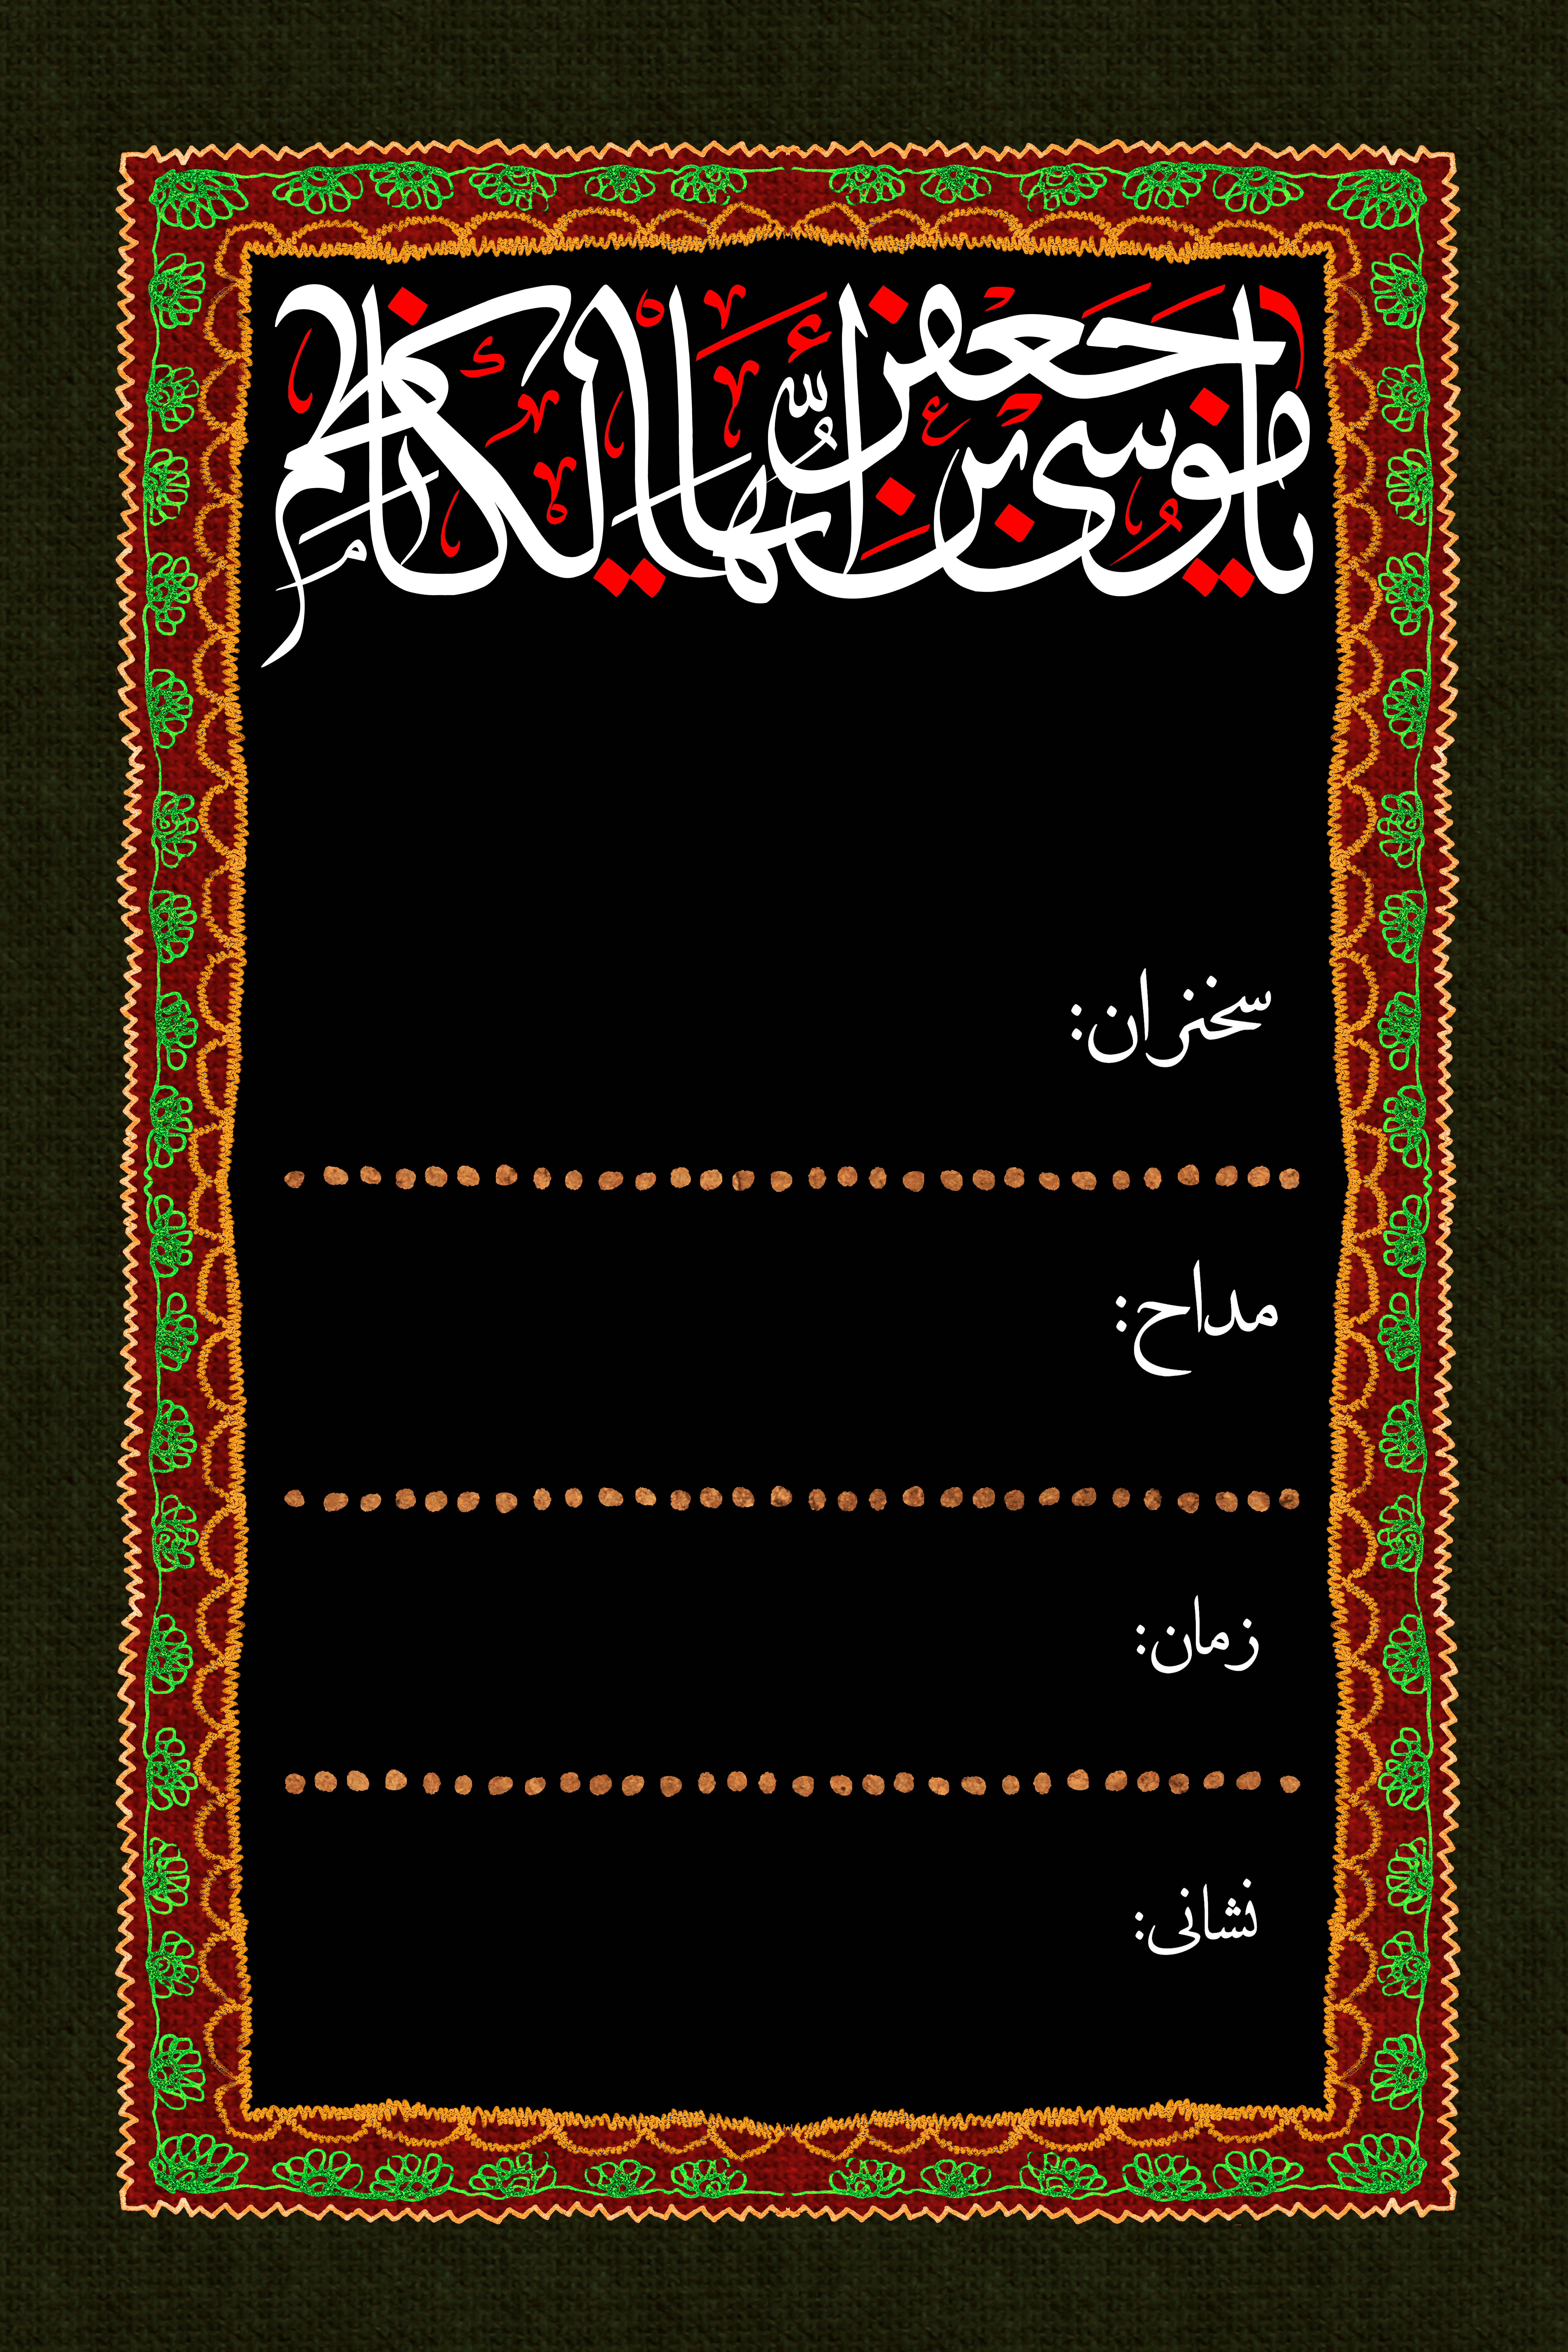 یا موسی بن جعفر أیها الکاظم
سخنران:
مداح:
زمان:
نشانی: